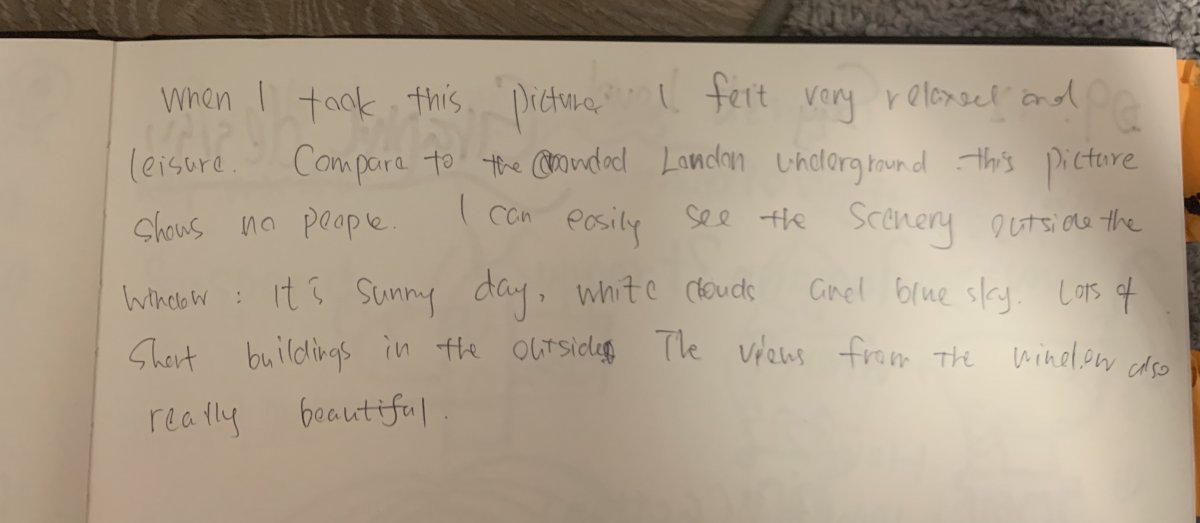 When I took this picture I felt very relaxed and
leisure. Compare to the crowded London underground this picture
shows no people. I can easily see the scenery outside the
window: it's sunny day, white clouds and blue sky. Lots of
short buildings in the outside. The views from the window also
really beautiful.